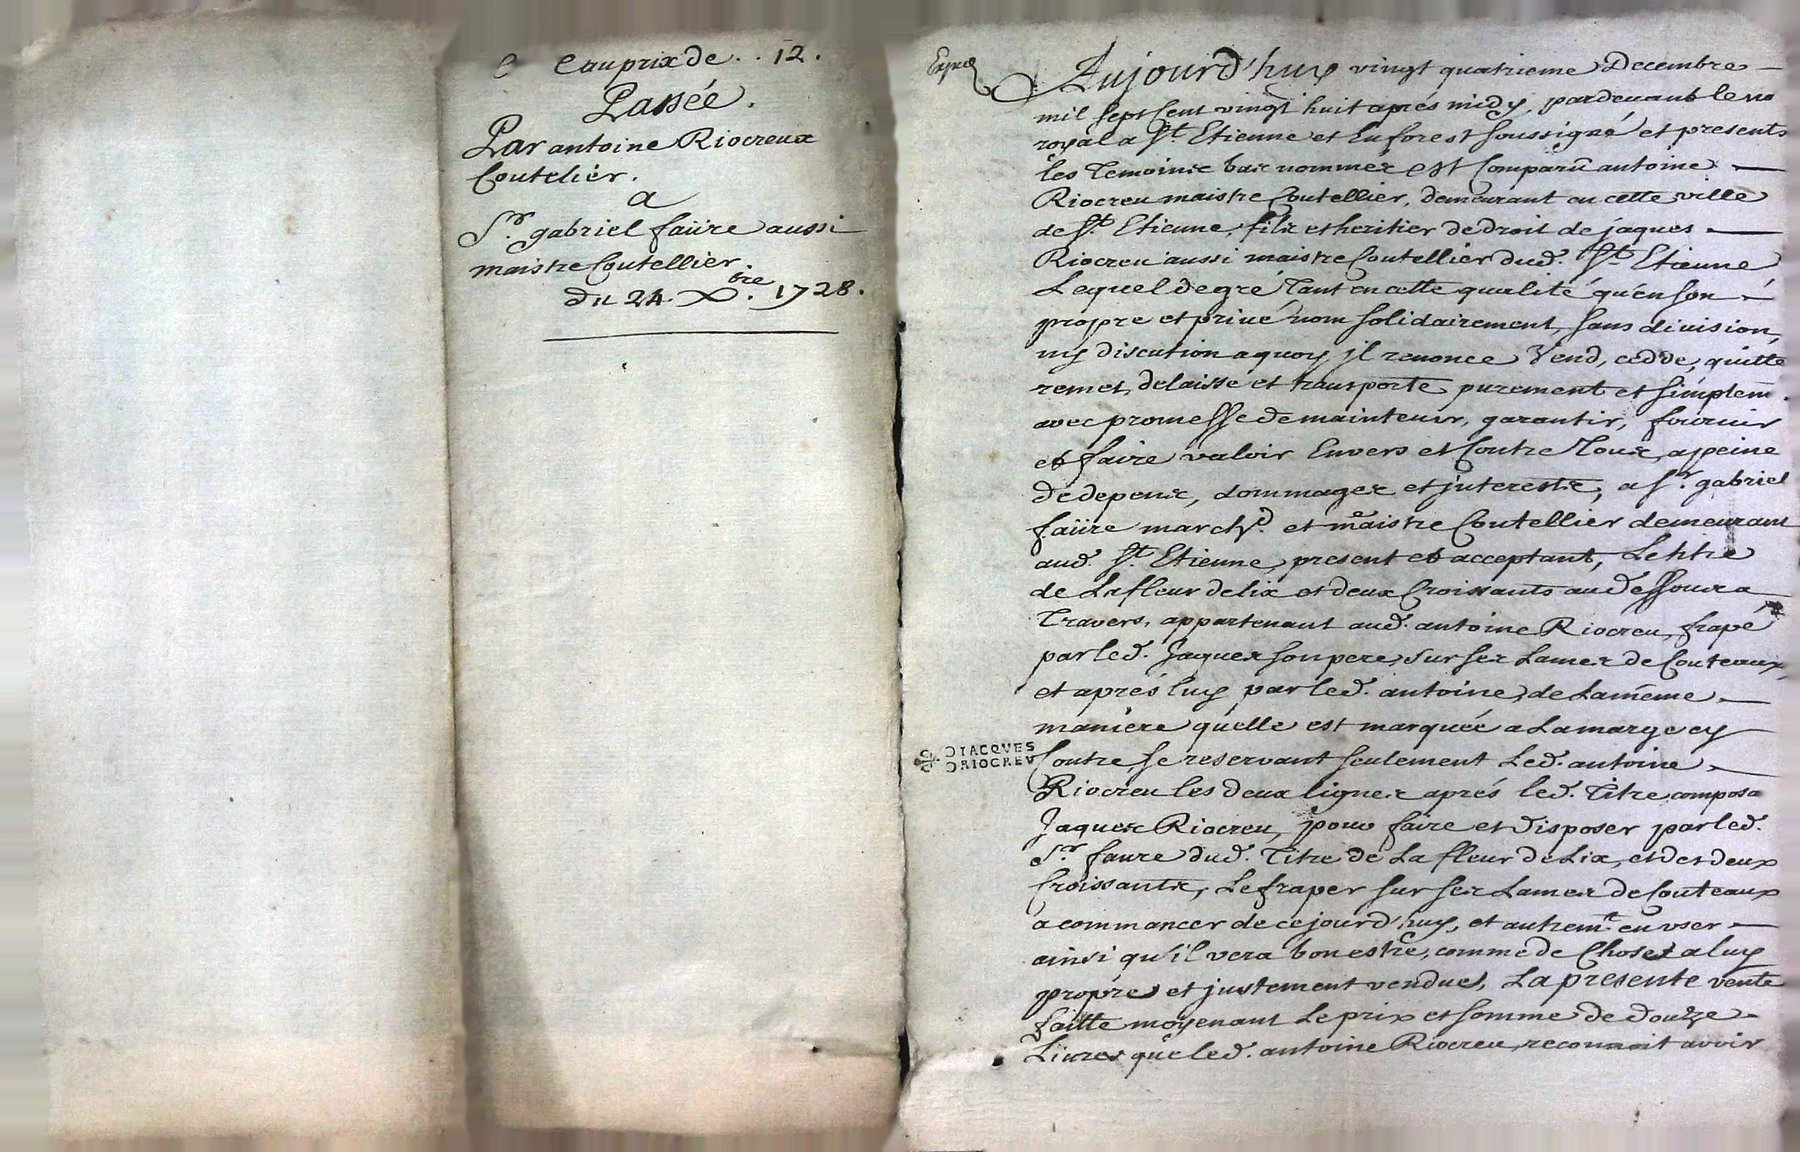 au prix de . . 12.
Passée.
Par antoine Riocreux
Coutelier.
a
Sr. gabriel faüre aussi
maistre Coutellier.
du 24. Xbre. 1728.
Aujourd'huy vingt quatrieme Decembre
mil sept Cent vingt huit aprés midy, pardevant le no
royal a St. Etienne et En forest soussigné et presents
les Temoins bas nommés est Comparü antoine
Riocreu maistre Coutellier, demeurant en cette ville
de St. Etienne, fils et heritier de droit de jaques
Riocreu aussi maistre Coutellier dud. St. Etienne
Lequel de gré Tant en cette qualité qu'en son
propre et privé nom solidairement, sans division,
ny discution a quoy, jl renonce Vend, cedde, quitte
remet, delaisse et transporte purement et simplem.
avec promesse de maintenir, garantir, fournir
et faire valoir Envers et Contre Tous, a peine
de depens, dommages et jnterests, a Sr. gabriel
faüre marchd. et maistre Coutellier demeurant
aud. St. Etienne, present et acceptant, Le titre
de La fleur de lix et deux Croissants au dessous a
Travers, appartenant aud. antoine Riocreu, frapé
par led. Jaques son pere, sur ses Lames de Couteaux,
et aprés luy par led. antoine, de La méme
maniere qu'elle est marquée a La marge cy
JACQVES
RIOCREV
Contre, se reservant seulement Led. antoine
Riocreu les deux lignes aprés led. Titre, composa
Jaques Riocreu, pour faire et disposer par led.
Sr. faure dud. Titre de La fleur de Lix, et des deux
Croissants, Le fraper sur ses Lames de Couteaux
a commancer de ce jourd'huy, et autremt. en vser
ainsi qu'il vera bon estre, comme de Chose a luy
propre et justement vendue, La presente vente
faitte moyenant Le prix et somme de douze
Livres que led. antoine Riocreu, reconnoit avoir